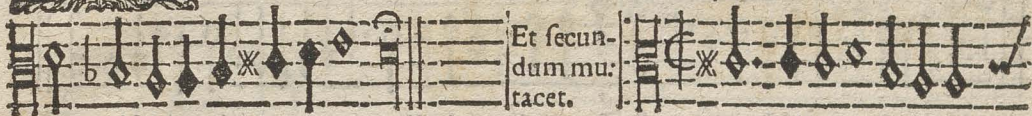 Et ſecun-
dum mu:
tacet.